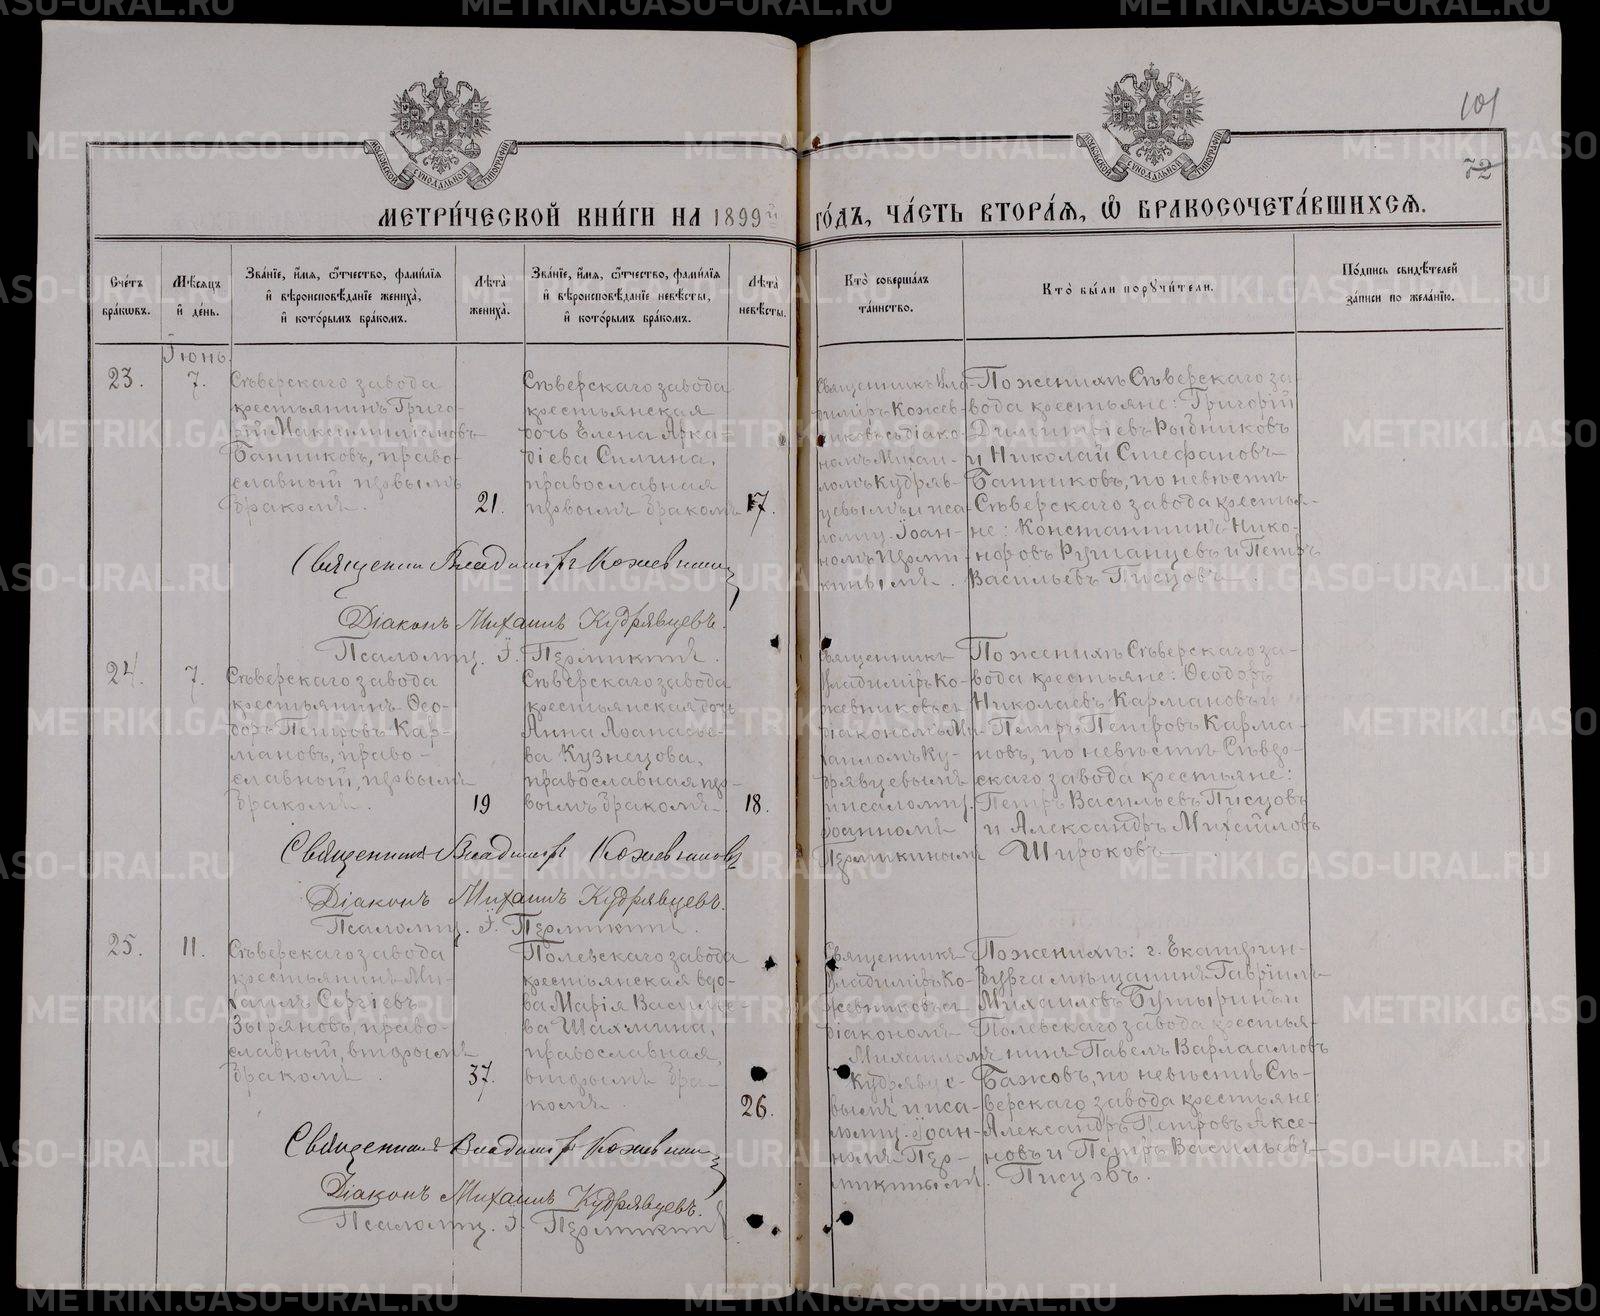 101
72
МЕТРИ́ЧЕСКОЙ КНИ́ГИ НА 1899й ГО́ДЪ, ЧА́СТЬ ВТОРА́Я, Ѽ БРАКОСОЧЕТА́ВШИХСЯ.
Сче́тъ бра́кѡвъ.
Мѣ́сяцъ и де́нь.
Зва́нїе, и́мя, ѻ́тчество, фами́лїя и вѣроисповѣ́данїе жениха̀, и кото́рымъ бра́комъ.
Лѣ́та жениха̀.
Зва́нїе, и́мя, ѻ́тчество, фами́лїя и вѣроисповѣ́данїе невѣ́сты, и кото́рымъ бра́комъ.
Лѣ́та невѣ́сты.
Кто̀ соверша́лъ та́инство.
Кто̀ бы́ли порꙋчи́тели.
По́дпись свидѣ́телей за́писи по жела́нїю.
Іюнь
23.
7.
Сѣверскаго завода
крестьянинъ Григо-
рій Максимиліановъ
Банниковъ, право-
славный первымъ
бракомъ.
21.
Сѣверскаго завода
крестьянская
дочь Елена Арка=
діева Силина,
православная
первымъ бракомъ
17.
Священникъ Вла-
диміръ Кожев-
никовъ съ діако-
номъ Михаи-
ломъ Кудряв-
цевымъ и пса-
ломщ. Іоан-
номъ Перми-
кинымъ.
По женихѣ Сѣверскаго за-
вода крестьяне: Григорій
Димитріевъ Рыбниковъ
и Николай Стефановъ
Банниковъ, по невѣстѣ
Сѣверскаго завода крестья-
не: Константинъ Нико-
норовъ Румянцевъ и Петръ
Васильевъ Писцовъ.
Священник Владиміръ Кожевников
Діаконъ Михаилъ Кудрявцевъ.
Псаломщ. І. Пермикинъ.
24.
7.
Сѣверскаго завода
крестьянинъ Ѳео-
доръ Петровъ Кар-
мановъ, право-
славный, первымъ
бракомъ.
19
Сѣверскаго завода
крестьянская дочь
Анна Аѳанасье-
ва Кузнецова,
православная пер-
вымъ бракомъ
18.
Священникъ
Владиміръ Ко-
жевниковъ съ
діакономъ Ми-
хаиломъ Ку-
дрявцевымъ
и псаломщ.
Іоанномъ
Пермикинымъ
По женихѣ Сѣверскаго за-
вода крестьяне: Ѳеодоръ
Николаевъ Кармановъ и
Петръ Петровъ Карма-
новъ, по невѣстѣ Сѣвер-
скаго завода крестьяне:
Петръ Васильевъ Писцовъ
и Александръ Михайловъ
Широковъ
Священникъ Владиміръ Кожевниковъ
Діаконъ Михаилъ Кудрявцевъ.
Псаломщ. І. Пермикинъ.
25.
11.
Сѣверскаго завода
крестьянинъ Ми-
хаилъ Сергіевъ
Зыряновъ, право-
славный, вторымъ
бракомъ.
37.
Полевскаго завода
крестьянская вдо-
ва Марія Василье-
ва Шахмина,
православная,
вторымъ бра-
комъ.
26.
Священникъ
Владиміръ Ко-
жевниковъ съ
діакономъ
Михаиломъ
Кудрявце-
вымъ и пса-
ломщ. Іоан-
номъ Пер-
микинымъ.
По женихѣ: г. Екатерин-
бурга мѣщанинъ Гавріилъ
Михаиловъ Бутыринъ и
Полевскаго завода крестья-
нинъ Павелъ Варлаамовъ
Бажовъ, по невѣстѣ Сѣ-
верскаго завода крестьяне:
Александръ Петровъ Аксе-
новъ и Петръ Васильевъ
Писцовъ.
Священникъ Владиміръ Кожевников
Діаконъ Михаилъ Кудрявцевъ.
Псаломщ. І. Пермикинъ
METRIKI.GASO-URAL.RU